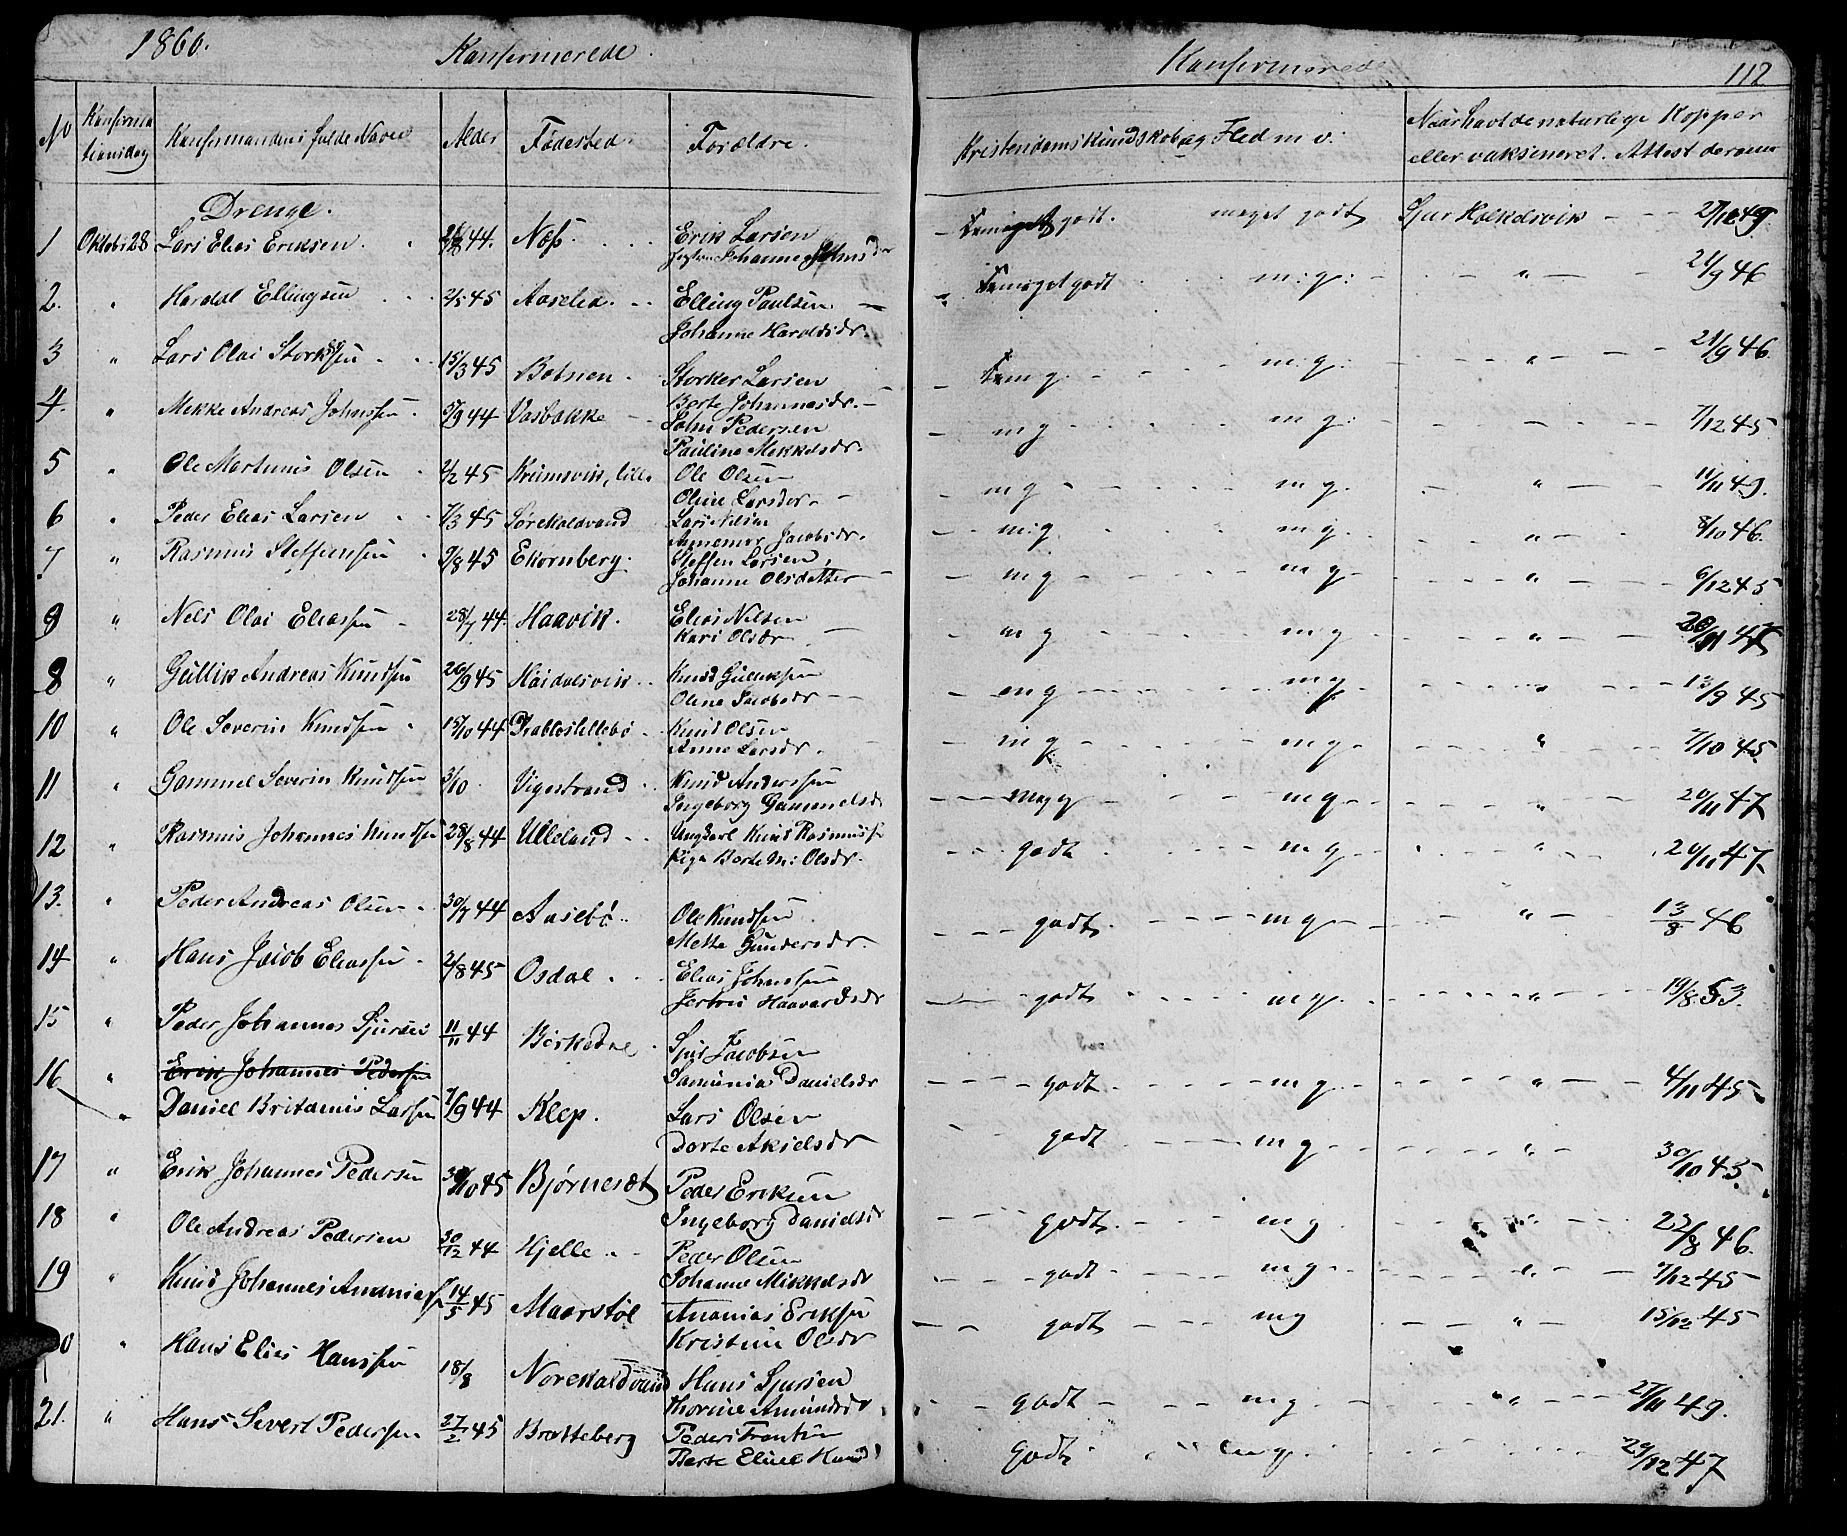 1860. Konfirmerede. Konfirmerede 112
No Konfirma Konfirmandens fulde Navn Alder Fødested. Forældre. Kristendomskundskab og Flid m v. Naar havt de naturlige Kopper
tionsdag eller vaksineret. Attest derom
Drenge.
1 Oktobr 28 Lars Elias Eriksen 44. Næs. Erik Larsen meget godt. meget godt Sjur Holkesvik 49.
Johanne
2. " Harald Ellingsen 2/5 45 Aarelid. Elling Paulsen meget godt m. g: " 21/9 46
Johanne Haroldsdr.
3 " Lars Olai Storksen 15/3 45 Botnen Storker Larsen m g. m. g: " 21/9 46.
Berte Johannesdr.
4. " Mekke Andreas Johnssen 5/9 44 Vasbakke John Pedersen m g m g: " 7/12 45
Pauline Mekkelsdr.
5 " Ole Martinus Olsen 2/2 45 Krumsvik, lille Ole Olsen m g m g. " 11/11 49.
Oline Larsdr.
6 " Peder Elias Larsen 7/3 45 Sørekaldvand Lars Nilsen m. g. m g. " 8/10 46.
Annemor Jacobsdr.
7 " Rasmus Steffensen 9/8 45 Ekornberg. Steffen Larsen m g m g " 6/12 45
Johanne Olsdatter
9 " Nels Olai Eliassen 28/7 44. Haavik. Elias Nilsen m g m g "
Kari Olsdr
8 " Gullik Andreas Knudsen 26/9 45 Hoidalsvik Knud Gulliksen m g m g " 13/9 45
Oline Jacobsdr
10 " Ole Severin Knudsen 15/10 44 Knud Olsen m g m g. " 7/10 45
Anne Larsdr.
11 " Gammel Severin Knudsen 3/10 Vigestrand Knud Anderssen m g m g " 20/11 47
Ingeborg Gammelsdr
12 " Rasmus Johannes Knudsen 28/8 44 Ulleland Ungkarl Knud Rasmussen godt m g " 20/11 47
Pige Berte M: Olsdr.
13. " Peder Andreas Olsen 30/7 44 Aasebø Ole Knudsen godt. m g " 13/8 46
Mette Gundersdr.
14 " Hans Jacob Eliassen 2/8 45 Osdal Elias Johanssen godt m g. " 19/8 53.
Haavardsdr
15 " Peder Johannes Sjursen 11/11 44 Birkedal Sjur Jacobsen godt m g " 4/11 45
Samunia Danielsdr
16 " Erik Johannes Pedersen
" Daniel Britanus Larsen 7/9 44 Klep. Lars Olsen godt m g " 30/10 45.
Dorte Akselsdr
17 " Erik Johannes Pedersen 30/10 45 Bjørneset Peder Eriksen godt. m g " 23/8 46.
Ingeborg Danielsdr
18 " Ole Andreas Pedersen 30/12 44 Hjelle Peder Olsen godt m g " 7/12 45
Johanne Mikkelsdr
19 " Knud Johannes Ananiassen 14/5 45 Maarstøl Ananias Eriksen godt m g " 15/12 45
Kristine Olsdr
20 " Hans Elias Hanssen 18/8 Norekaldvand Hans Sjursen godt m g " 27/11 49.
Thorine Amundsdr
21. " Hans Sivert Pedersen 27/2 45 Bratteberg Peder Frantsen godt m g. 29/12 47
Berte Eline Knud